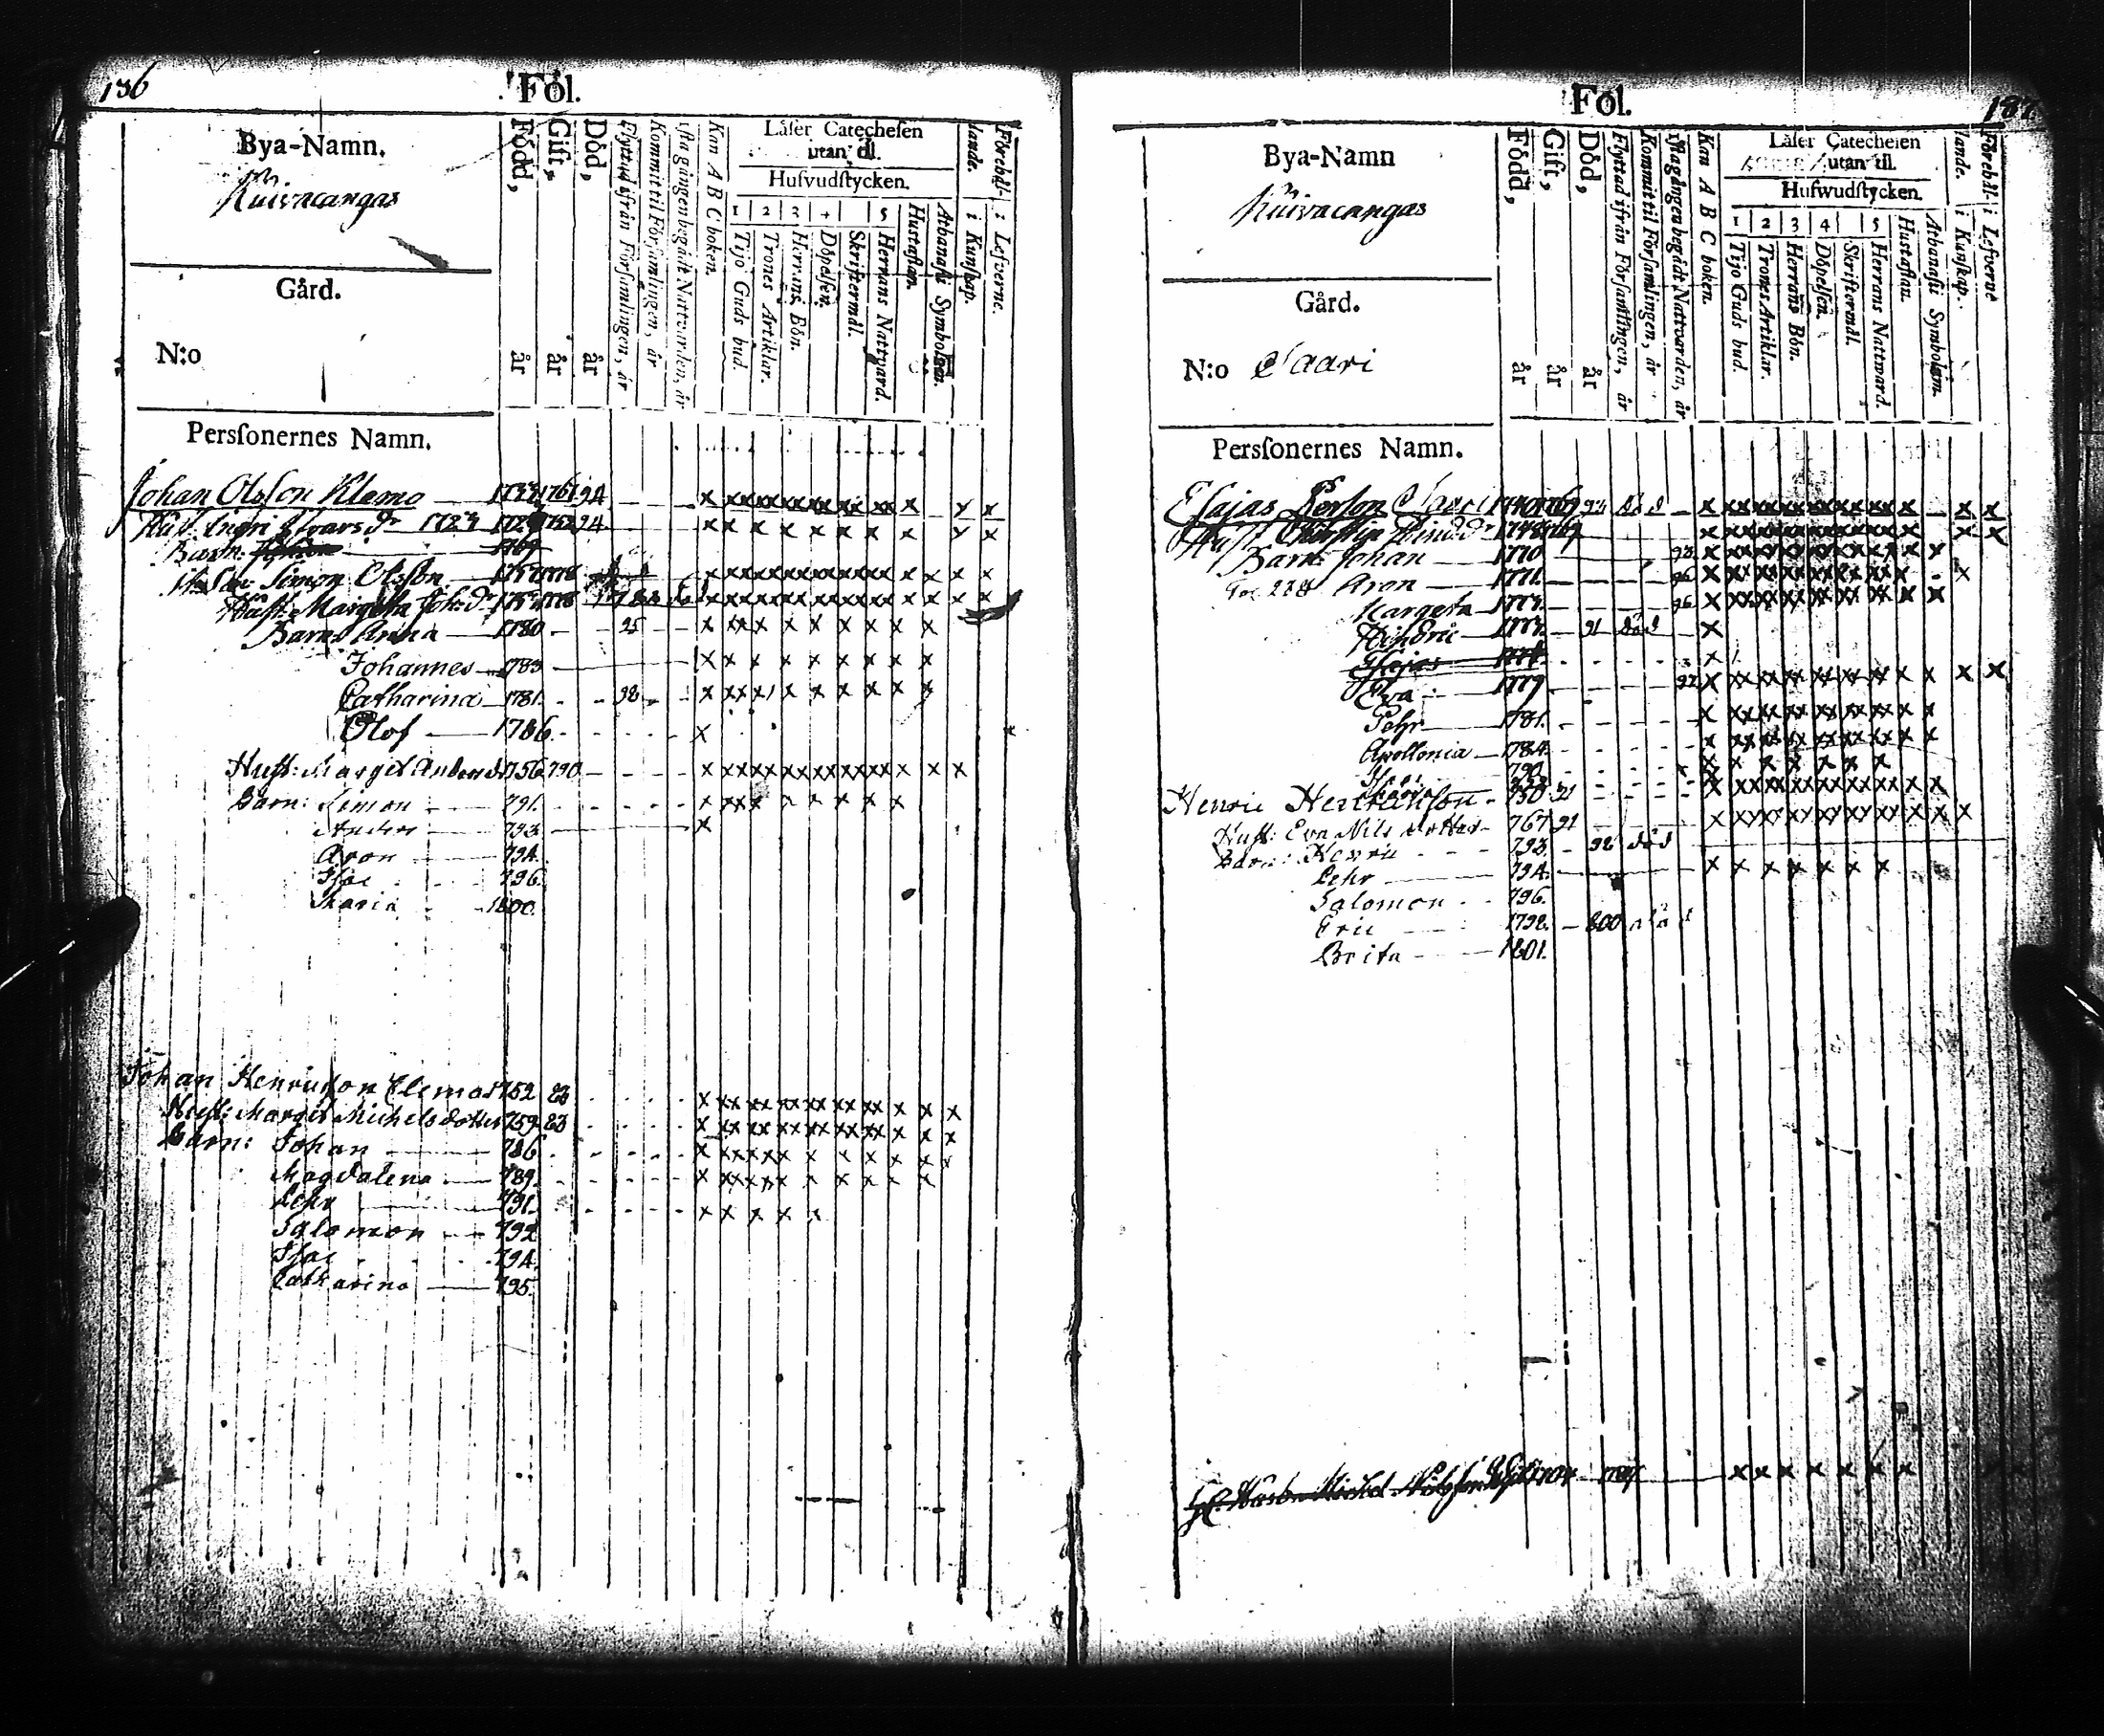 136
Fol.
Bya-Namn.
Kuivacangas
Gård.
N:o
Persſonernes Namn.
Född, år
Gift, år
Död, år
Flyttad ifrån Förſamlingen, år
Kommit til Förſamlingen, år
1ſta gången begådt Nattvarden, år
Kan A B C boken.
Låſer Catecheſen
utan til.
Hufvudſtycken.
1 2 3 4 5
Tijo Guds bud.
Trones Artiklar.
Herrans Bön.
Döpelſen.
Skriftermål.
Herrans Nattvard.
Huſtaflan.
Athanaſii Symbolum.
Förehållande.
i Kunſkap.
i Lefverne.
Johan Olsſon Klemo 1761 94
Huſt. Ingri Ivars dr. 1723 1752 94
Barn: 1769
Simon Olsſon 1757 1778
Huſt. Margeta Joh:dr 1757 1778 1788
Barn: Anna 1780 95
Johannes 1783
Catharina 1781. 98
Olof 1786
Huſt: Margit Anders d. 1756 790
Barn: Simon 791.
Anders 793
Aron 794
Iſac 796.
Maria 1800.
Johan Henricſon Clemo 1752 83
Huſt: Margit Michelsdotter 759 83
Barn: Johan 786
Magdalena 789.
Pehr 791.
Salomon 792
Iſac 794.
Catharina 795.
187
Fol.
Bya-Namn
Kuivacangas
Gård.
N:o Saari
Persſonernes Namn.
Född, år
Gift, år
Död, år
Flyttad ifrån Förſamlingen, år
Kommit til Förſamlingen, år
1ſta gången begådt Nattvarden, år
Kan A B C boken.
Låſer Catecheſen
utan til.
Hufwudſtycken.
1 2 3 4 5
Tijo Guds bud.
Trones Artiklar.
Herrans Bön.
Döpelſen.
Skriftermål.
Herrans Nattward.
Huſtaflan.
Athanaſii Symbolum.
Förehållande.
i Kunſkap.
i Lefverne
Eſajas Perſon Saari 1740 1769 93 död
Huſt 1748 1769
Barn: Johan 1770 93
Aron 1771. 96
Margeta 1773. 96
Hindric 1777. 91 död
Eſajas 1778
Eva 1779 97
Pehr 1781.
Apollonia 1784.
790
Henric Henricsſon 750 91
Huſt: Eva Nils dotter 767 91
Barn: Henric 793 98 död
Pehr 794.
Salomon 796.
Eric 1798. 800 död
Brita 1801.